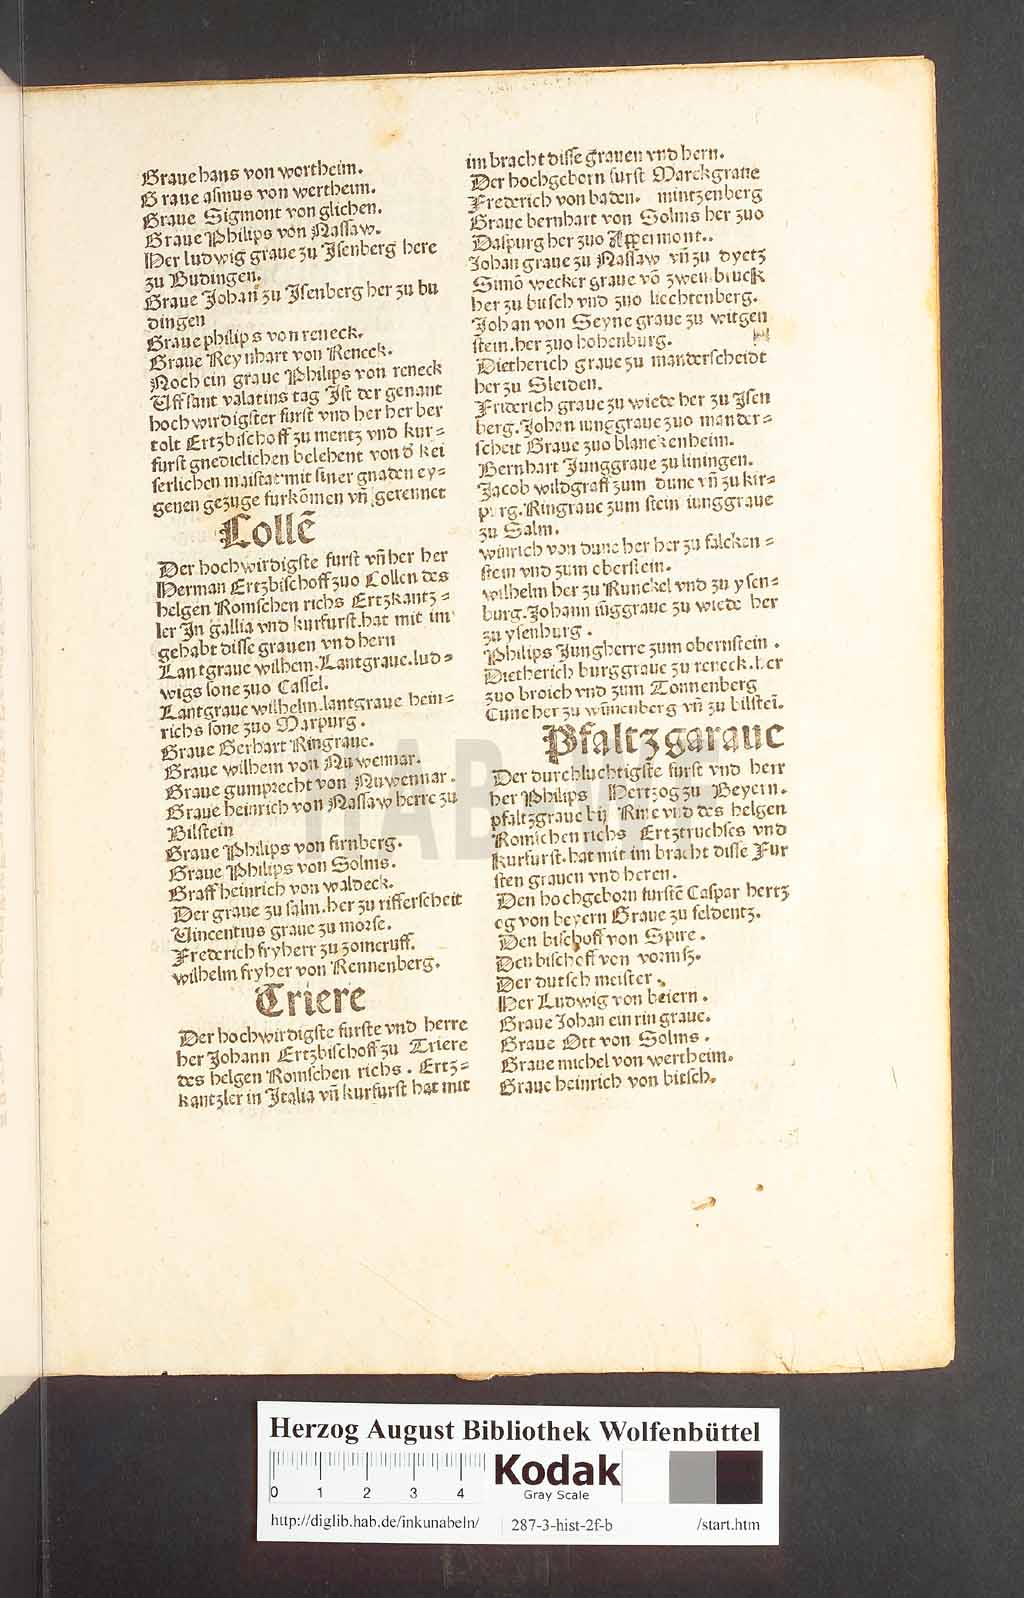 Graue hans von wertheim.
Graue asmus von wertheim.
Graue Sigmont von glichen.
Graue Philips von Nassaw.
Her ludwig graue zu Jsenberg here
zu Budingen.
Graue Johan zu Jsenberg her zu bu
dingen
Graue philips von reneck.
Graue Reynhart von Reneck.
Noch ein graue Philips von reneck
Uff sant valatins tag Jst der genant
hochwirdigster furst vnd her her ber
tolt Ertzbischoff zu mentz vnd kur=
furst gnediclichen belehent von d̄ kei
serlichen maistat mit siner gnaden ey=
genen gezuge furkōmen vn̄ gerennet
Collē
Der hochwirdigste furst vn̄ her her
Herman Ertzbischoff zuo Collen des
helgen Romschen richs Ertzkantz=
ler Jn gallia vnd kurfurst.hat mit im
gehabt disse grauen vnd hern
Lantgraue wilhem.Lantgraue.lud=
wigs sone zuo Cassel.
Lantgraue wilhelm.lantgraue hein=
richs sone zuo Marpurg.
Graue Gerhart Ringraue.
Graue wilhem von Nuwennar.
Graue gumprecht von Nuwennar.
Graue heinrich von Nassaw herre zu
Bilstein
Graue Philips von firnberg.
Graue Philips von Solms.
Graff heinrich von waldeck.
Der graue zu salm.her zu rifferscheit
Vincentius graue zu morse.
Frederich fryherr zu zomeruff.
wilhelm fryher von Rennenberg.
Triere
Der hochwirdigste furste vnd herre
her Johann Ertzbischoff zu Triere
des helgen Romschen richs. Ertz=
kantzler in Jtalia vn̄ kurfurst hat mit
im bracht disse grauen vnd hern.
Der hochgeborn furst Marckgraue
Frederich von baden. mintzenberg
Graue bernhart von Solms her zuo
Daspurg her zuo Appermont..
Johan graue zu Nassaw vn̄ zu dyetz
Simō wecker graue vō zwen bruck
her zu bitsch vnd zuo liechtenberg.
Johan von Seyne graue zu witgen
stein.her zuo hohenburg.
Dietherich graue zu manderscheidt
her zu Sleiden.
Friderich graue zu wiede her zu Jsen
berg.Johan iunggraue zuo mander=
scheit Graue zuo blanckenheim.
Bernhart Junggraue zu liningen.
Jacob wildgraff zum dune vn̄ zu kir=
purg.Ringraue zum stein iunggraue
zu Salm.
winrich von dune her her zu falcken=
stein vnd zum oberstein.
wilhelm her zu Runckel vnd zu ysen=
burg.Johann iūggraue zu wiede her
zu ysenburg.
Philips Jungherre zum obernstein.
Dietherich burggraue zu reneck.her
zuo broich vnd zum Tonnenberg
Cune her zu winnenberg vn̄ zu bilsteī.
Pfaltzgaraue
Der durchluchtigste furst vnd herr
her Philips Hertzog zu Beyern.
pfaltzgraue bij Rine vnd des helgen
Romschen richs Ertztruchses vnd
kurfurst.hat mit im bracht disse Fur
sten grauen vnd heren.
Den hochgeborn furstē Caspar hertz
og von beyern Graue zu feldentz.
Den bischoff von Spire.
Den bischoff von vormsz.
Der dutsch meister.
Her Ludwig von beiern.
Graue Johan ein rin graue.
Graue Ott von Solms.
Graue michel von wertheim.
Graue heinrich von bitsch.
HAB
Herzog August Bibliothek Wolfenbüttel
0 1 2 3 4
Kodak
Gray Scale
http://diglib.hab.de/inkunabeln/ 287-3-hist-2f-b /start.htm